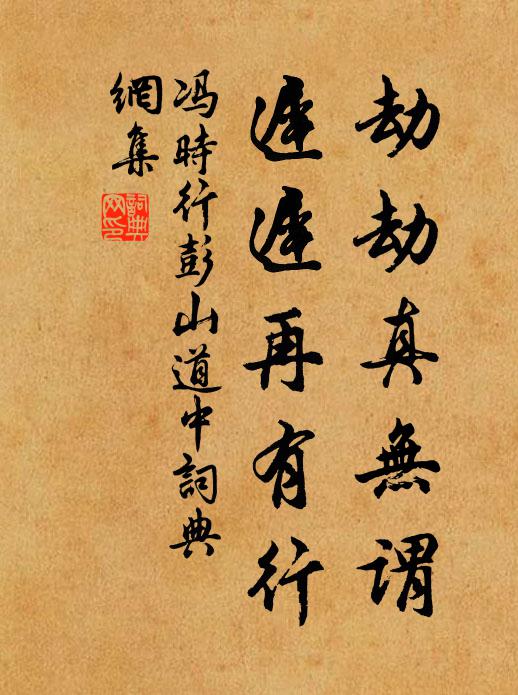 劫劫真無謂
遲遲再有行
冯時行彭山道中詞典
網集
詞典
网印